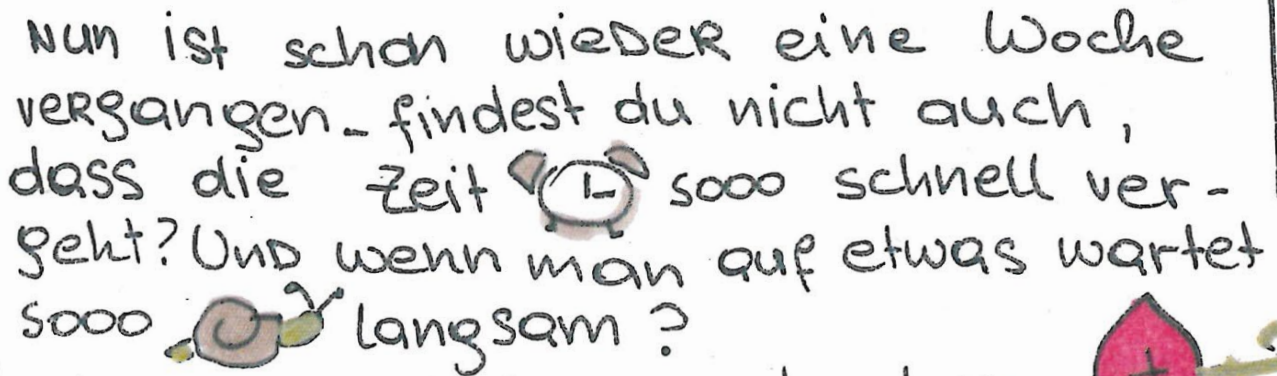 Nun ist schon wieder eine Woche
vergangen - findest du nicht auch,
dass die Zeit sooo schnell ver-
geht? Und wenn man auf etwas wartet
sooo langsam?